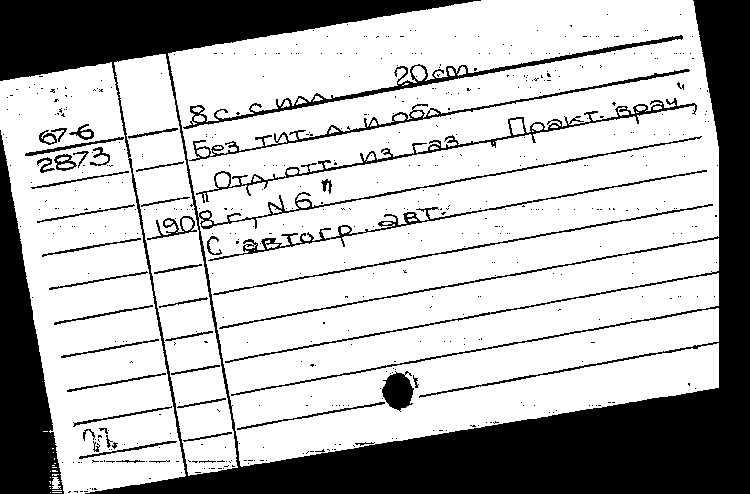 8 с. с илл. 20 cm.
67-6
2873
Без тит. л. и обл.
"Отд. отт. из газ. „Практ. врач",
1908 г., N 6"
С автогр. авт.